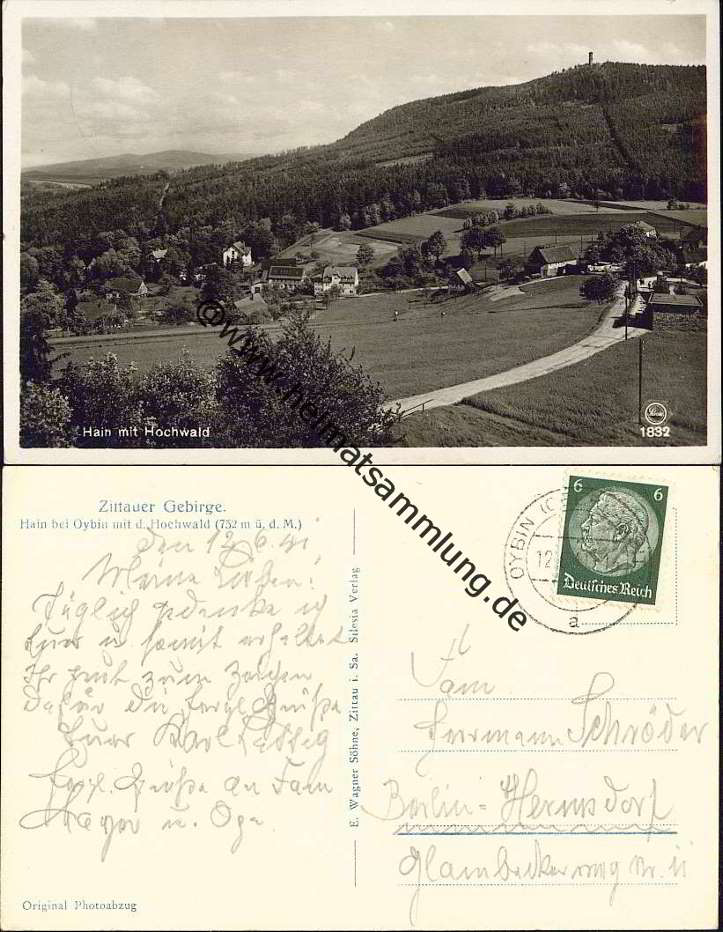 Hain mit Hochwald
1832
@www.heimatsammlung.de
Zittauer Gebirge.
Hain bei Oybin mit d. Hochwald (752 m ü. d. M.)
den 12.6.41
Meine Lieben!
Täglich gedenke ich
Euer u. somit erhaltet
Ihr heut zum Zeichen
dafür die herzl. Grüße
Euer Karl
Herzl. Grüße an Fam
Mayer u. Opa
Original Photoabzug
E. Wagner Söhne, Zittau i. Sa. Silesia Verlag
OYBIN
12
a
6 6
Deutsches Reich
Fam.
Hermann Schröder
Berlin-Hermsdorf
Glambeckerweg Nr. 11